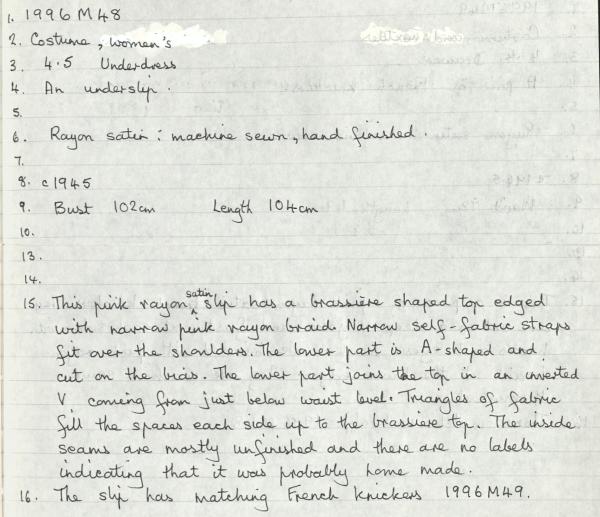 1. 1996 M48
2. Costume, women's
3. 4.5 Underdress
4. An underslip.
5.
6. Rayon satin: machine sewn, hand finished.
7.
8. c1945
9. Bust 102cm Length 104cm
10.
13.
14.
15. This pink rayon satin slip has a brassière shaped top edged
with narrow pink rayon braid. Narrow self-fabric straps
fit over the shoulders. The lower part is A-shaped and
cut on the bias. The lower part joins the top in an inverted
V, coming from just below waist level. Triangles of fabric
fill the spaces each side up to the brassière top. The inside
seams are mostly unfinished and there are no labels
indicating that it was probably home made.
16. The slip has matching French knickers 1996M49.